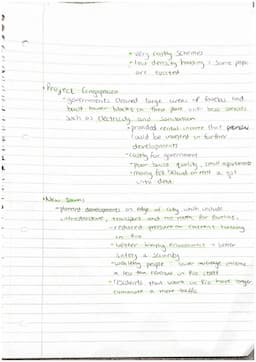 • very costly schemes
• low density housing : some people
are evicted
• Project
- governments cleared large areas of favelas and
built tower blocks in their place with basic services
such as electricity and sanitation
- provided rental income that
could be used in further
developments
- costly for government
- poor quality, small apartments
- many fell behind on rent & got
into debt
• New towns
- planned developments on edge of city which include
infrastructure, transport and for families
- reduced pressure on current housing
in Rio
- better living environment - better
safety & security
- wealthy people
a less tax revenue in Rio
- residents that work in Rio have longer
commute & more traffic